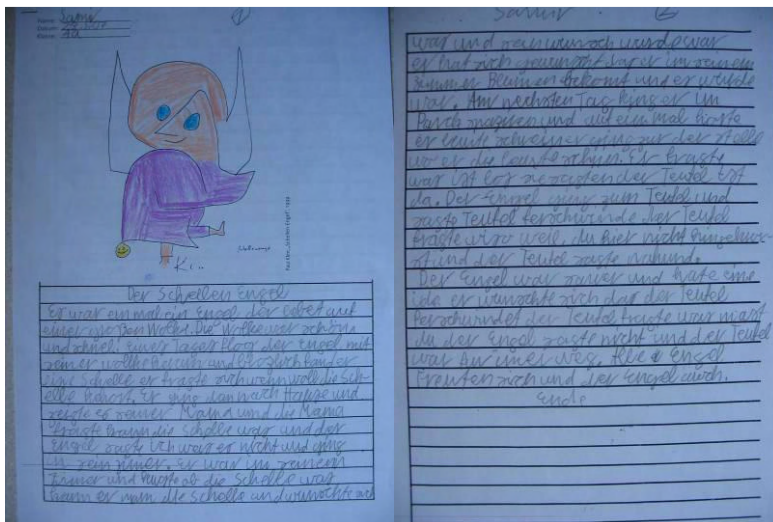 Name: Samir
Datum:
Klasse:
1
Schellenengel
K...
Der Schellen Engel
Es war ein mal ein Engel der lebet auf
einer Wolke. Die Wolke war schön
und schnel. Eines Tages floog der Engel mit
seiner wolke herum und
eine Schelle er fragte sich wem woll die Sch-
elle hört. Er ging dan nach Hause und
zeigte es seiner Mama und die Mama
fragte die Schelle war und der
Engel sagte ich weis es nicht und ging
in sein zimer. Er war im seinem
Zimer und ob die Schelle was
kann er nam die Schelle und wünschte sich
Samir 2
was und sein wunsch wurde war
er hat sich gewünscht das er in seinem
zimmer Blumen bekomt und es wurde
war. Am nechsten Tag ging er im
Parck spaziren und auf ein mal hörte
er laute ging zu der stelle
wo er die laute Er fragte
was ist los sie sagten der Teufel ist
da. Der Engel ging zum Teufel und
sagte Teufel ferschwinde der Teufel
fragte wiso weil du hier nicht hingehör-
st und der Teufel sagte na und.
Der Engel war sauer und hate eine
ide er wünschte sich das der Teufel
ferschwindet der Teufel fragte was
du der Engel sagte nichts und der Teufel
war für imer weg. Alle Engel
freuten sich und der Engel auch.
Ende